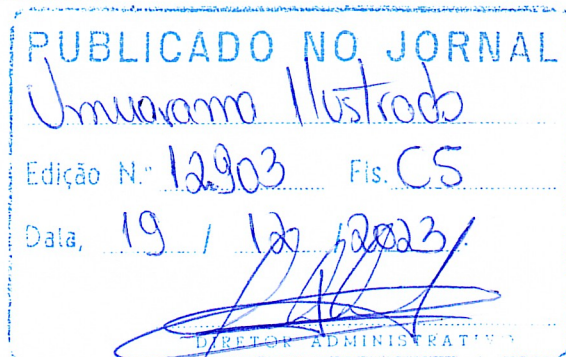 PUBLICADO NO JORNAL
Umuarama Ilustrado
Edição N.º 12.903 Fls. C5
Data, 19 / 12 / 2023
DIRETOR ADMINISTRATIVO